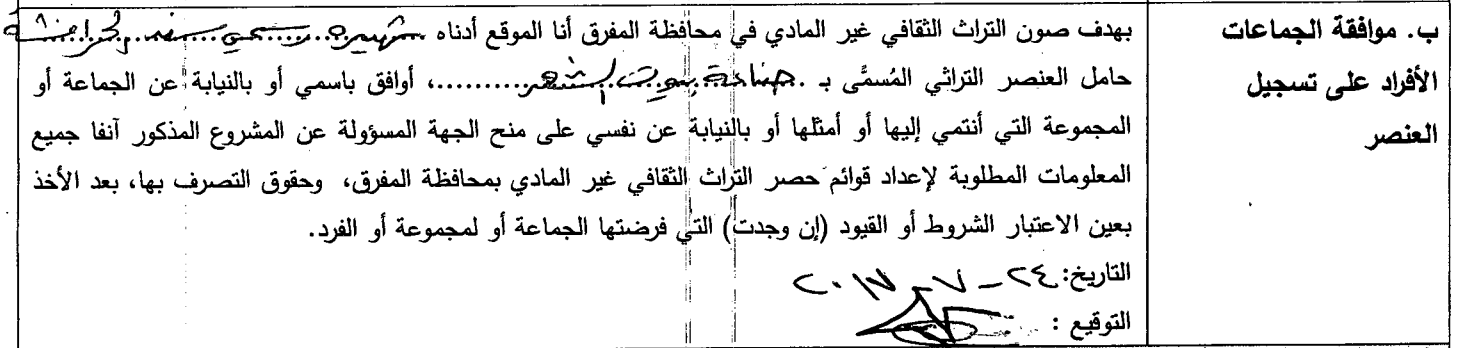 ب. موافقة الجماعات
الأفراد على تسجيل
العنصر
بهدف صون التراث الثقافي غير المادي في محافظة المفرق أنا الموقع أدناه
حامل العنصر التراثي المُسمَّى بـ .صناعة بيوت الشعر..........، أوافق باسمي أو بالنيابة عن الجماعة أو
المجموعة التي أنتمي إليها أو أمثلها أو بالنيابة عن نفسي على منح الجهة المسؤولة عن المشروع المذكور آنفا جميع
المعلومات المطلوبة لإعداد قوائم حصر التراث الثقافي غير المادي بمحافظة المفرق، وحقوق التصرف بها، بعد الأخذ
بعين الاعتبار الشروط أو القيود (إن وجدت) التي فرضتها الجماعة أو لمجموعة أو الفرد.
التاريخ: ٢٤ - ٧ - ٢٠١٧
التوقيع :